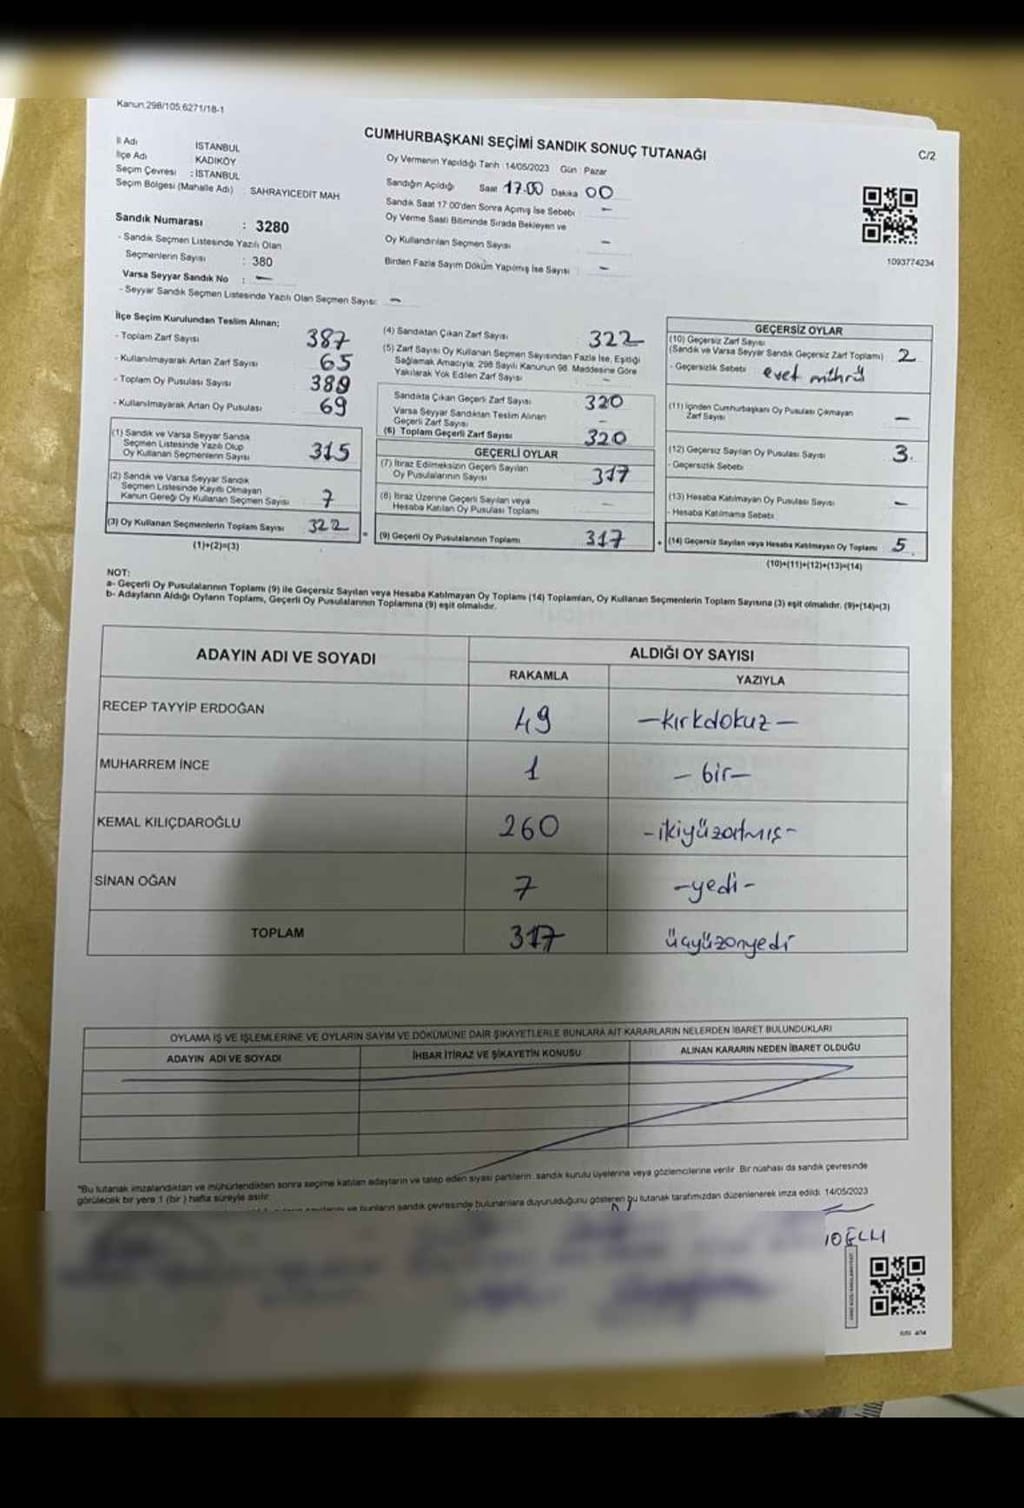 Kanun:298/105;6271/18-1
CUMHURBAŞKANI SEÇİMİ SANDIK SONUÇ TUTANAĞI
C/2
İl Adı İSTANBUL
İlçe Adı KADIKÖY
Seçim Çevresi : İSTANBUL
Seçim Bölgesi (Mahalle Adı) : SAHRAYICEDİT MAH
Sandık Numarası : 3280
- Sandık Seçmen Listesinde Yazılı Olan
Seçmenlerin Sayısı : 380
Varsa Seyyar Sandık No : —
- Seyyar Sandık Seçmen Listesinde Yazılı Olan Seçmen Sayısı: —
Oy Vermenin Yapıldığı Tarih :14/05/2023 Gün Pazar
Sandığın Açıldığı Saat 17.00 Dakika 00
Sandık Saat 17:00'den Sonra Açımış İse Sebebi : —
Oy Verme Saati Bitiminde Sırada Bekleyen ve
Oy Kullandırılan Seçmen Sayısı —
Birden Fazla Sayım Döküm Yapılmış İse Sayısı : —
1093774234
İlçe Seçim Kurulundan Teslim Alınan;
- Toplam Zarf Sayısı 387
- Kullanılmayarak Artan Zarf Sayısı 65
- Toplam Oy Pusulası Sayısı 389
- Kullanılmayarak Artan Oy Pusulası 69
(1) Sandık ve Varsa Seyyar Sandık
Seçmen Listesinde Yazılı Olup
Oy Kullanan Seçmenlerin Sayısı 315
(2) Sandık ve Varsa Seyyar Sandık
Seçmen Listesinde Kayıtlı Olmayan
Kanun Gereği Oy Kullanan Seçmen Sayısı 7
(3) Oy Kullanan Seçmenlerin Toplam Sayısı 322
(1)+(2)=(3)
(4) Sandıktan Çıkan Zarf Sayısı 322
(5) Zarf Sayısı Oy Kullanan Seçmen Sayısından Fazla İse, Eşitliği
Sağlamak Amacıyla; 298 Sayılı Kanunun 98. Maddesine Göre
Yakılarak Yok Edilen Zarf Sayısı —
Sandıkta Çıkan Geçerli Zarf Sayısı 320
Varsa Seyyar Sandıktan Teslim Alınan
Geçerli Zarf Sayısı —
(6) Toplam Geçerli Zarf Sayısı 320
GEÇERLİ OYLAR
(7) İtiraz Edilmeksizin Geçerli Sayılan
Oy Pusulalarının Sayısı 317
(8) İtiraz Üzerine Geçerli Sayılan veya
Hesaba Katılan Oy Pusulası Toplamı —
(9) Geçerli Oy Pusulalarının Toplamı 317
GEÇERSİZ OYLAR
(10) Geçersiz Zarf Sayısı
(Sandık ve Varsa Seyyar Sandık Geçersiz Zarf Toplamı) 2
- Geçersizlik Sebebi evet mührü
(11) İçinden Cumhurbaşkanı Oy Pusulası Çıkmayan
Zarf Sayısı —
(12) Geçersiz Sayılan Oy Pusulası Sayısı 3.
- Geçersizlik Sebebi
(13) Hesaba Katılmayan Oy Pusulası Sayısı —
- Hesaba Katılmama Sebebi
(14) Geçersiz Sayılan veya Hesaba Katılmayan Oy Toplamı 5.
(10)+(11)+(12)+(13)=(14)
NOT:
a- Geçerli Oy Pusulalarının Toplamı (9) ile Geçersiz Sayılan veya Hesaba Katılmayan Oy Toplamı (14) Toplamları, Oy Kullanan Seçmenlerin Toplam Sayısına (3) eşit olmalıdır. (9)+(14)=(3)
b- Adayların Aldığı Oyların Toplamı, Geçerli Oy Pusulalarının Toplamına (9) eşit olmalıdır.
ADAYIN ADI VE SOYADI ALDIĞI OY SAYISI
RAKAMLA YAZIYLA
RECEP TAYYİP ERDOĞAN 49 —kırkdokuz—
MUHARREM İNCE 1 —bir—
KEMAL KILIÇDAROĞLU 260 -ikiyüzatmış-
SİNAN OĞAN 7 -yedi-
TOPLAM 317 üçyüzonyedi
OYLAMA İŞ VE İŞLEMLERİNE VE OYLARIN SAYIM VE DÖKÜMÜNE DAİR ŞİKAYETLERLE BUNLARA AİT KARARLARIN NELERDEN İBARET BULUNDUKLARI
ADAYIN ADI VE SOYADI İHBAR İTİRAZ VE ŞİKAYETİN KONUSU ALINAN KARARIN NEDEN İBARET OLDUĞU
"Bu tutanak imzalandıktan ve mühürlendikten sonra seçime katılan adayların ve talep eden siyasi partilerin; sandık kurulu üyelerine veya gözlemcilerine verilir. Bir nüshası da sandık çevresinde
görülecek bir yere 1 (bir) hafta süreyle asılır.
ve bunların sandık çevresinde bulunanlara duyurulduğunu gösteren bu tutanak tarafımızdan düzenlenerek imza edildi. 14/05/2023